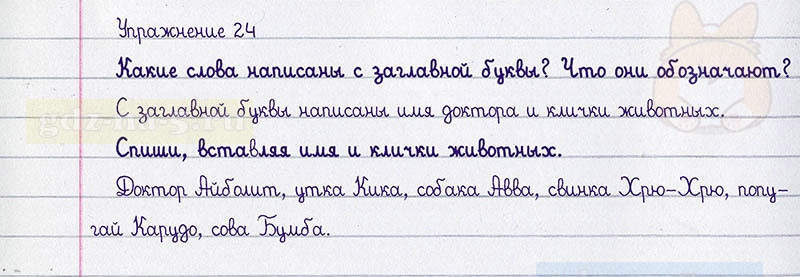 Упражнение 24
Какие слова написаны с заглавной буквы? Что они обозначают?
С заглавной буквы написаны имя доктора и клички животных.
Спиши, вставляя имя и клички животных.
Доктор Айболит, утка Кика, собака Авва, свинка Хрю-Хрю, попу-
гай Карудо, сова Бумба.